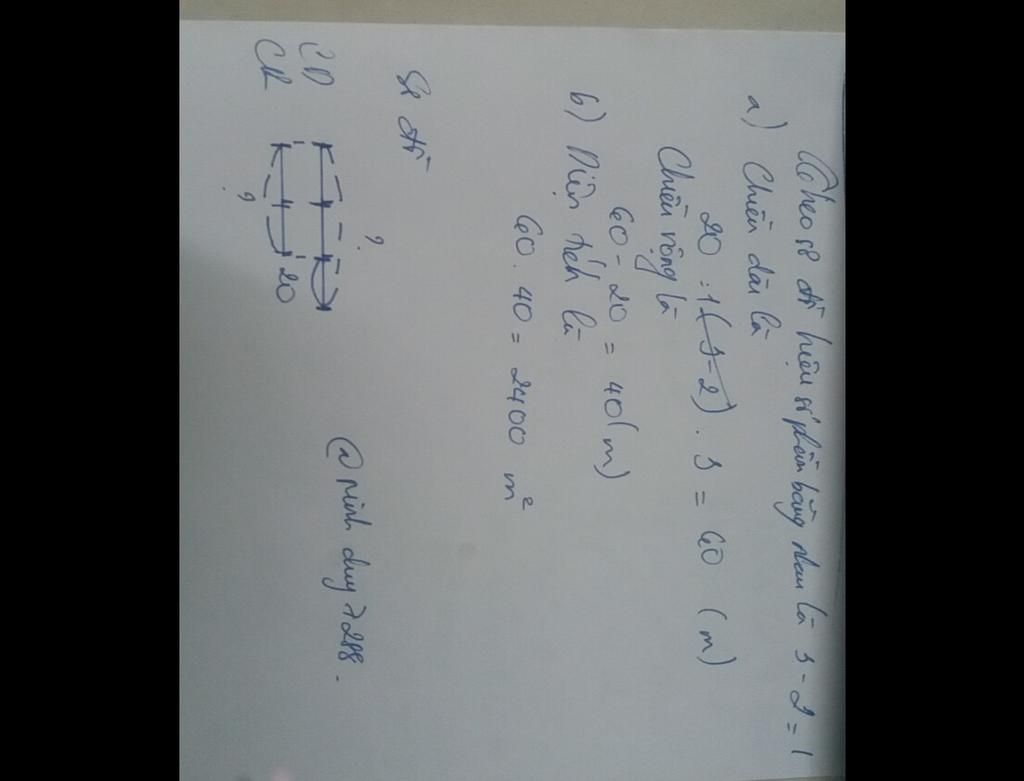 Theo sơ đồ hiệu số phần bằng nhau là 3 - 2 = 1
a) Chiều dài là
20 : 1 (3-2) . 3 = 60 (m)
Chiều rộng là
60 - 20 = 40 (m)
b) Diện tích là
60 . 40 = 2400 m²
Sơ đồ
CD ?
CR 20
?
@ minh duy 7288.